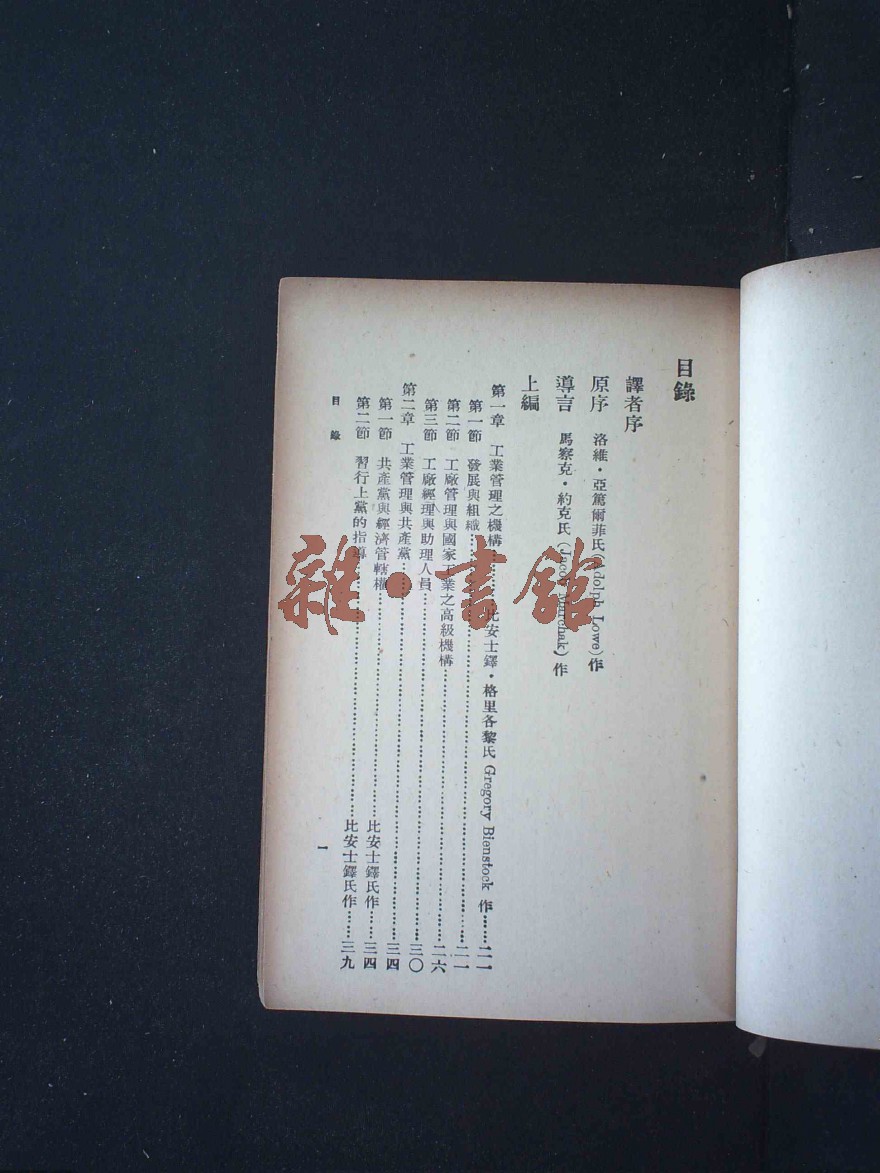 目錄
譯者序
原序 洛維·亞篤爾菲氏(Adolph Lowe)作
導言 馬察克·約克氏(Jacob Marchak)作
上編
第一章 工業管理之機構……比安士鐸·格里各黎氏 Gregory Bienstock 作……二一
第一節 發展與組織……二一
第二節 工廠管理與國家工業之高級機構……二六
第三節 工廠經理與助理人員……三〇
第二章 工業管理與共產黨……三四
第一節 共產黨與經濟管轄權……比安士鐸氏作……三四
第二節 習行上黨的指導……比安士鐸氏作……三九
目錄
一
雜·書館